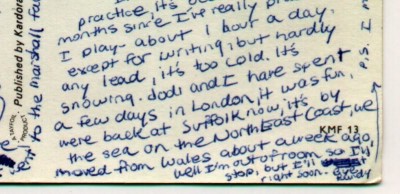 practice, it's
months since I've really
I play about 1 hour a day,
except for writing, but hardly
any lead, it's too cold. It's
snowing. Jodi and I have spent
a few days in London, it was fun,
were back at Suffolk now, it's by
the sea on the North East Coast, we
moved from Wales about a week ago,
well I'm out of room so I'll
stop, but I'll
right soon.
P.S. I
to the marshall
Published by Kardor
KMF 13